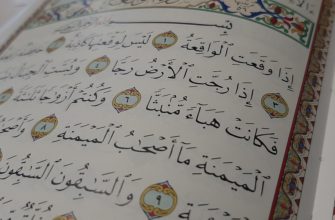 بِسْمِ
إِذَا وَقَعَتِ ٱلْوَاقِعَةُ ١ لَيْسَ لِوَقْعَتِهَا كَاذِبَةٌ
٣ إِذَا رُجَّتِ ٱلْأَرْضُ رَجًّا ٤ وَبُسَّتِ ٱلْجِبَالُ
فَكَانَتْ هَبَآءً مُّنۢبَثًّا ٦ وَكُنتُمْ أَزْوَٰجًا ثَلَٰثَةً
ٱلْمَيْمَنَةِ مَآ أَصْحَٰبُ ٱلْمَيْمَنَةِ ٨ وَأَصْحَٰبُ
٩ وَٱلسَّٰبِقُونَ ٱلسَّٰبِقُونَ